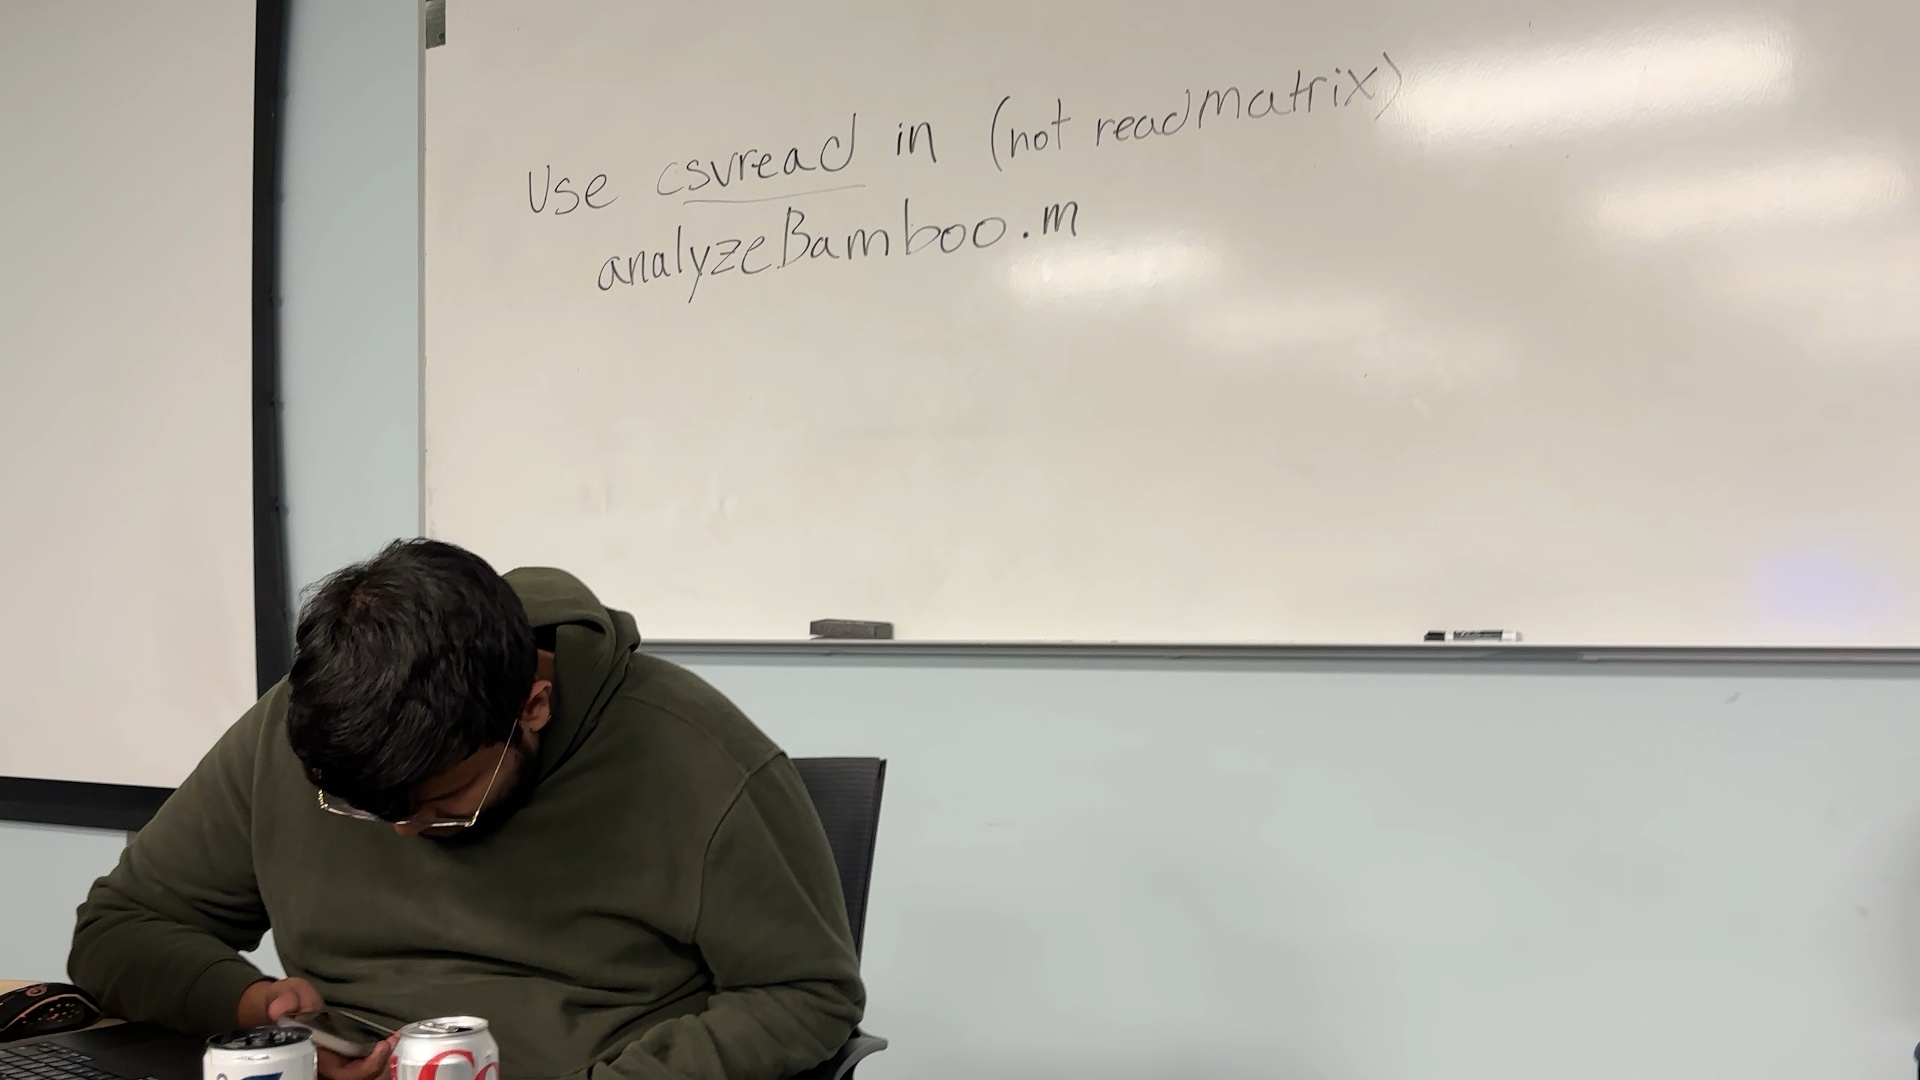 Use csvread in (not readmatrix)
analyzeBamboo.m
Co